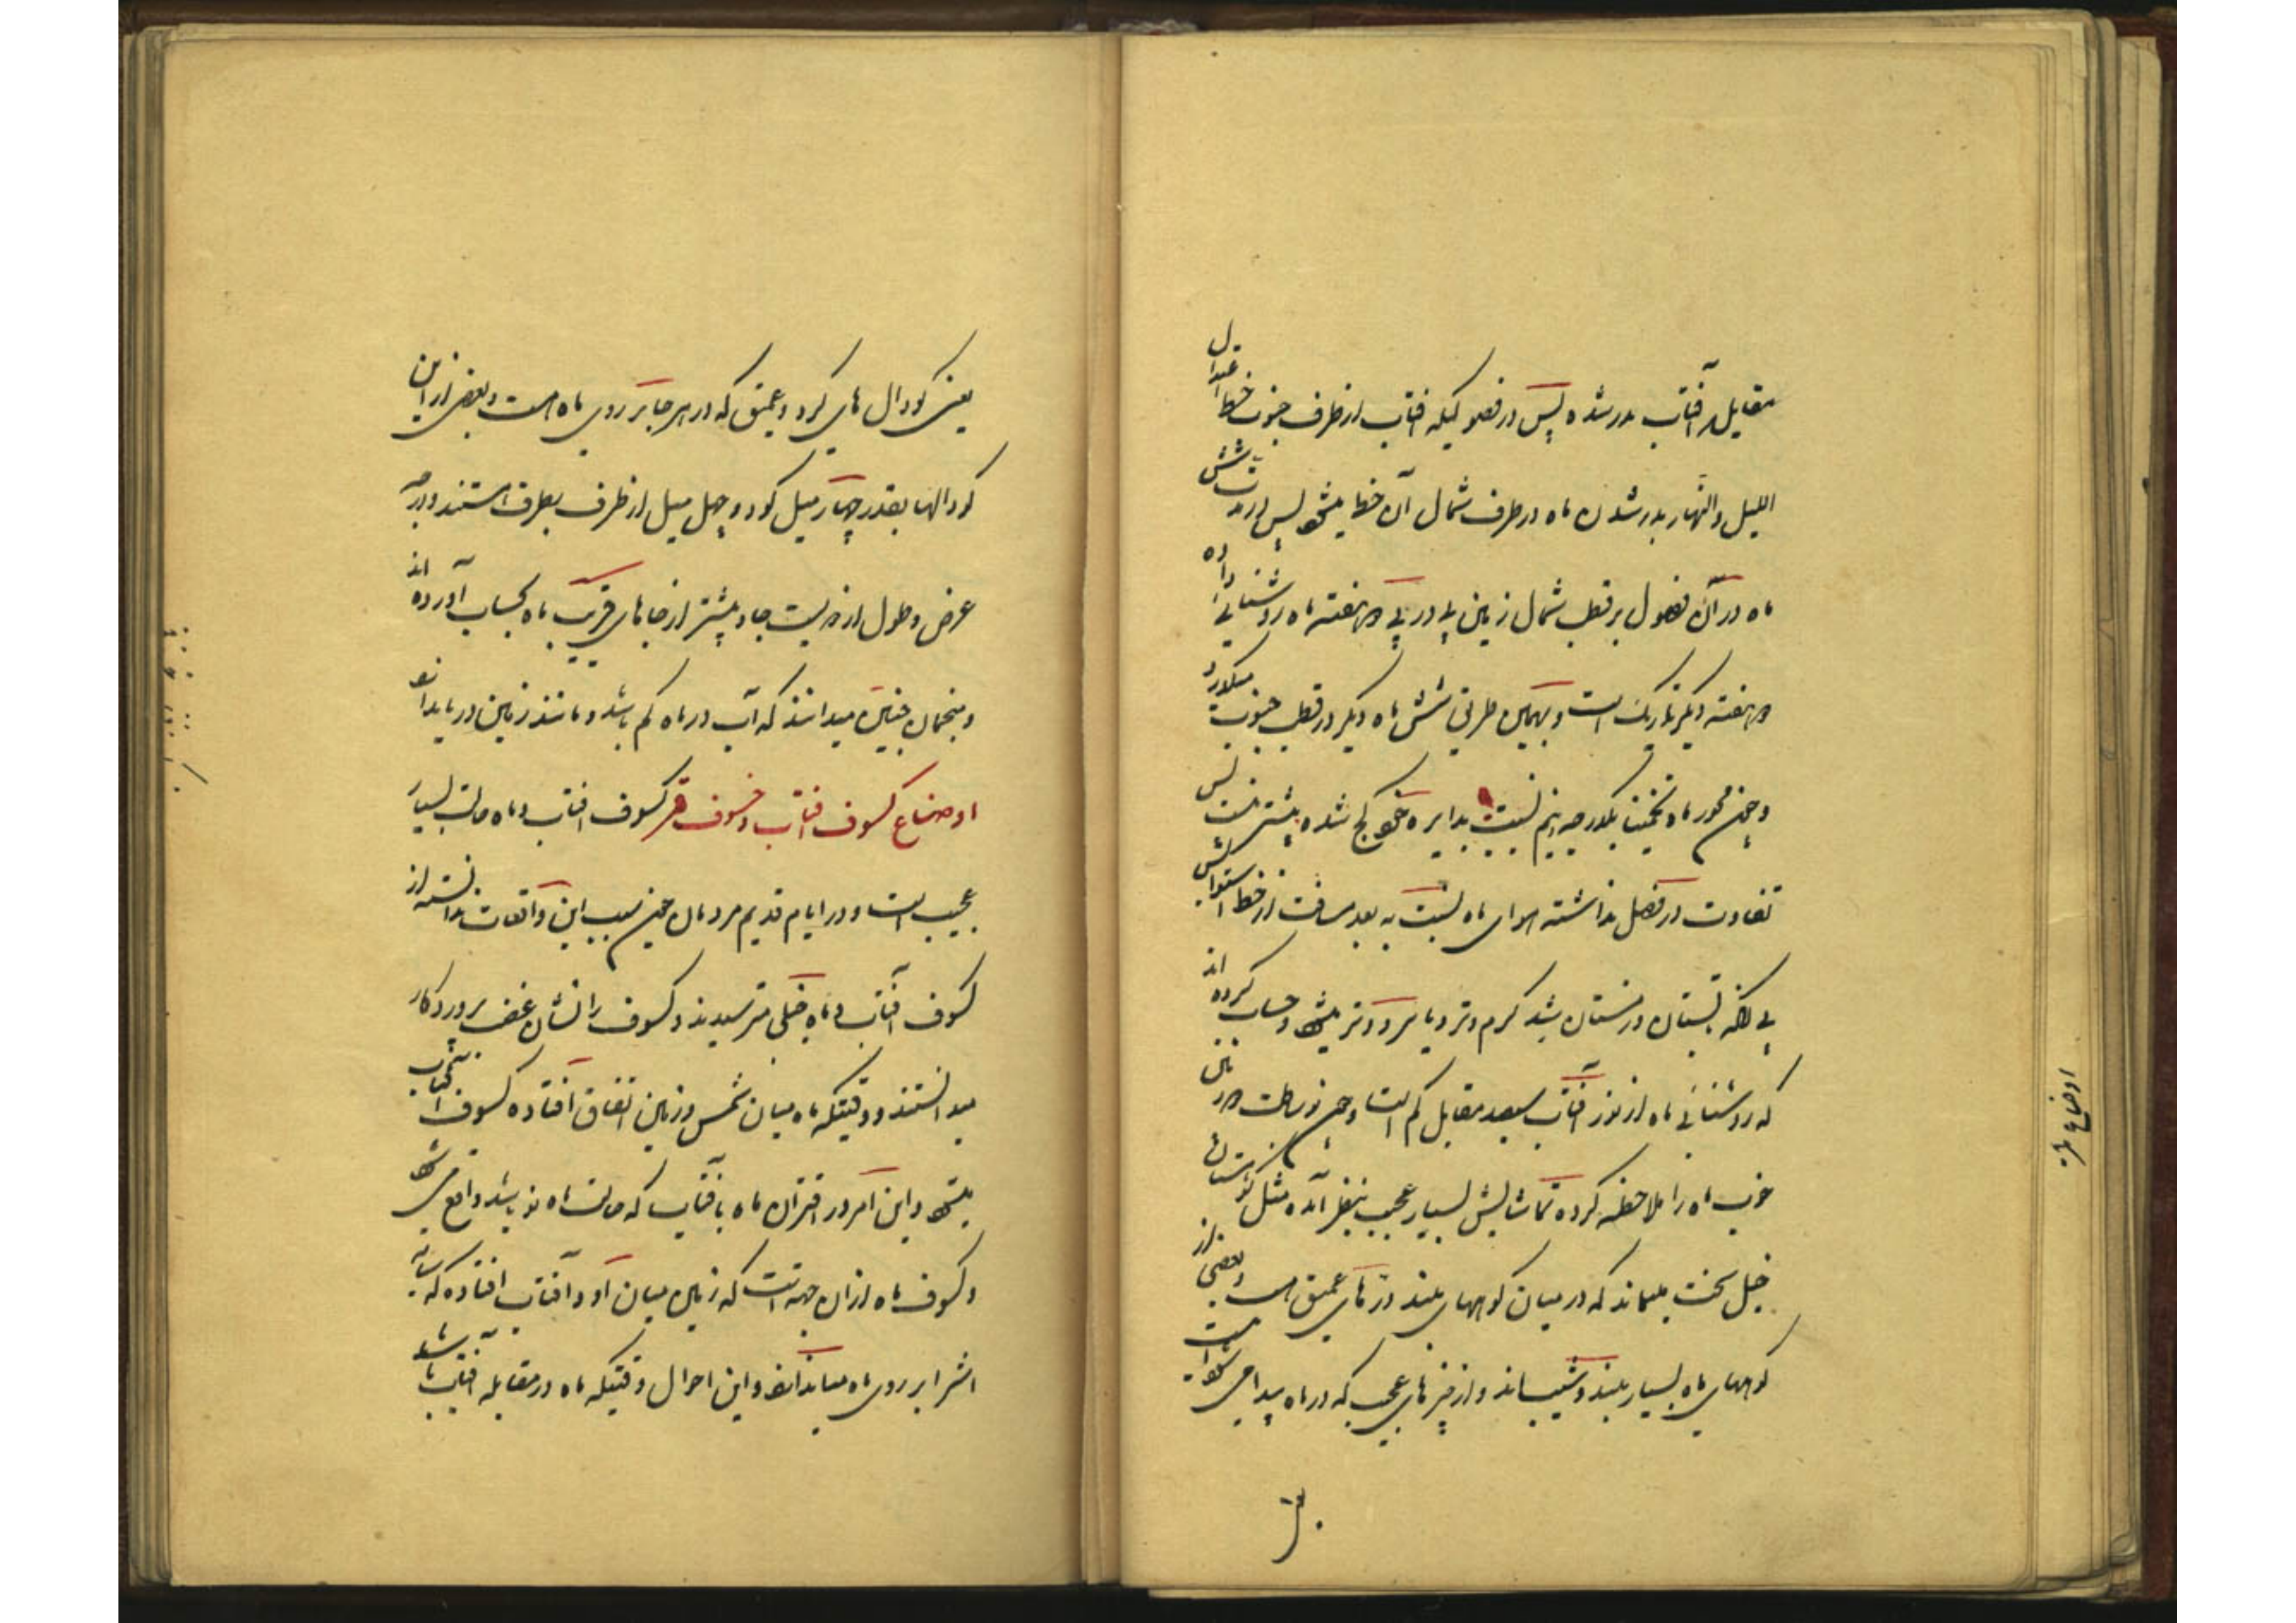 مقابل آفتاب بدر شده پس در فصولیکه افتاب از طرف جنوب خط اعتدال
اللیل والنهار بدر شدن ماه در طرف شمال آن خط میشود پس در مدت شش
ماه در آن فصول بر قطب شمال زمین پی در پی دو هفته ماه روشنائی داده
دو هفته دیگر تاریک است و بهمین طریق شش ماه دیگر در قطب جنوب میگذرد
و چون محور ماه تخمینا یکدرجه و نیم نسبت بدایره خود کج شده بیشتر نیست پس
تفاوت در فصل نداشته هوای ماه نسبت به بعد مسافت از خط استوایش
بی آنکه تابستان و زمستان باشد گرم و تر و یا سرد و تر میشود و حساب کرده اند
که روشنائی ماه از نور آفتاب سیصد مقابل کم است و چون بوساطت دوربین
خوب ماه را ملاحظه کرده تماشایش بسیار عجیب بنظر آمده مثل کوهستان
خیلی سخت میماند که در میان کوههای بلند دره های عمیق است و بعضی از
کوههای ماه بسیار بلند و شیب اند و از چیزهای عجیب که در ماه پیدا می شود
اوضاع ماه
یعنی کودال های گرد و عمیق که در هر جا بر روی ماه است و بعضی از این
کودالها بقدر چهار میل کود و چهل میل از طرف بطرف استند و درجه
عرض و طول از دویست جا و بیشتر از جاهای غریب ماه بحساب آورده اند
و منجمان چنین میدانند که آب در ماه کم باشد و مانند زمین دریا ندارد
اوضاع کسوف افتاب و خسوف قمر کسوف افتاب و ماه حالت بسیار
عجیب است و در ایام قدیم مردمان چون سبب این واقعات ندانسته از
کسوف آفتاب و ماه خیلی میترسیدند و کسوف را نشان غضب پروردکار
میدانستند و وقتیکه ماه میان شمس و زمین اتفاق افتاده کسوف آفتاب
میشود و این امر در اقتران ماه با فتاب که حالت ماه نو باشد واقع می شود
و کسوف ماه از ان جهت است که زمین میان او و آفتاب افتاده که سایه
اش را بر روی ماه میاندازد و این احوال وقتیکه ماه در مقابله آفتاب باشد